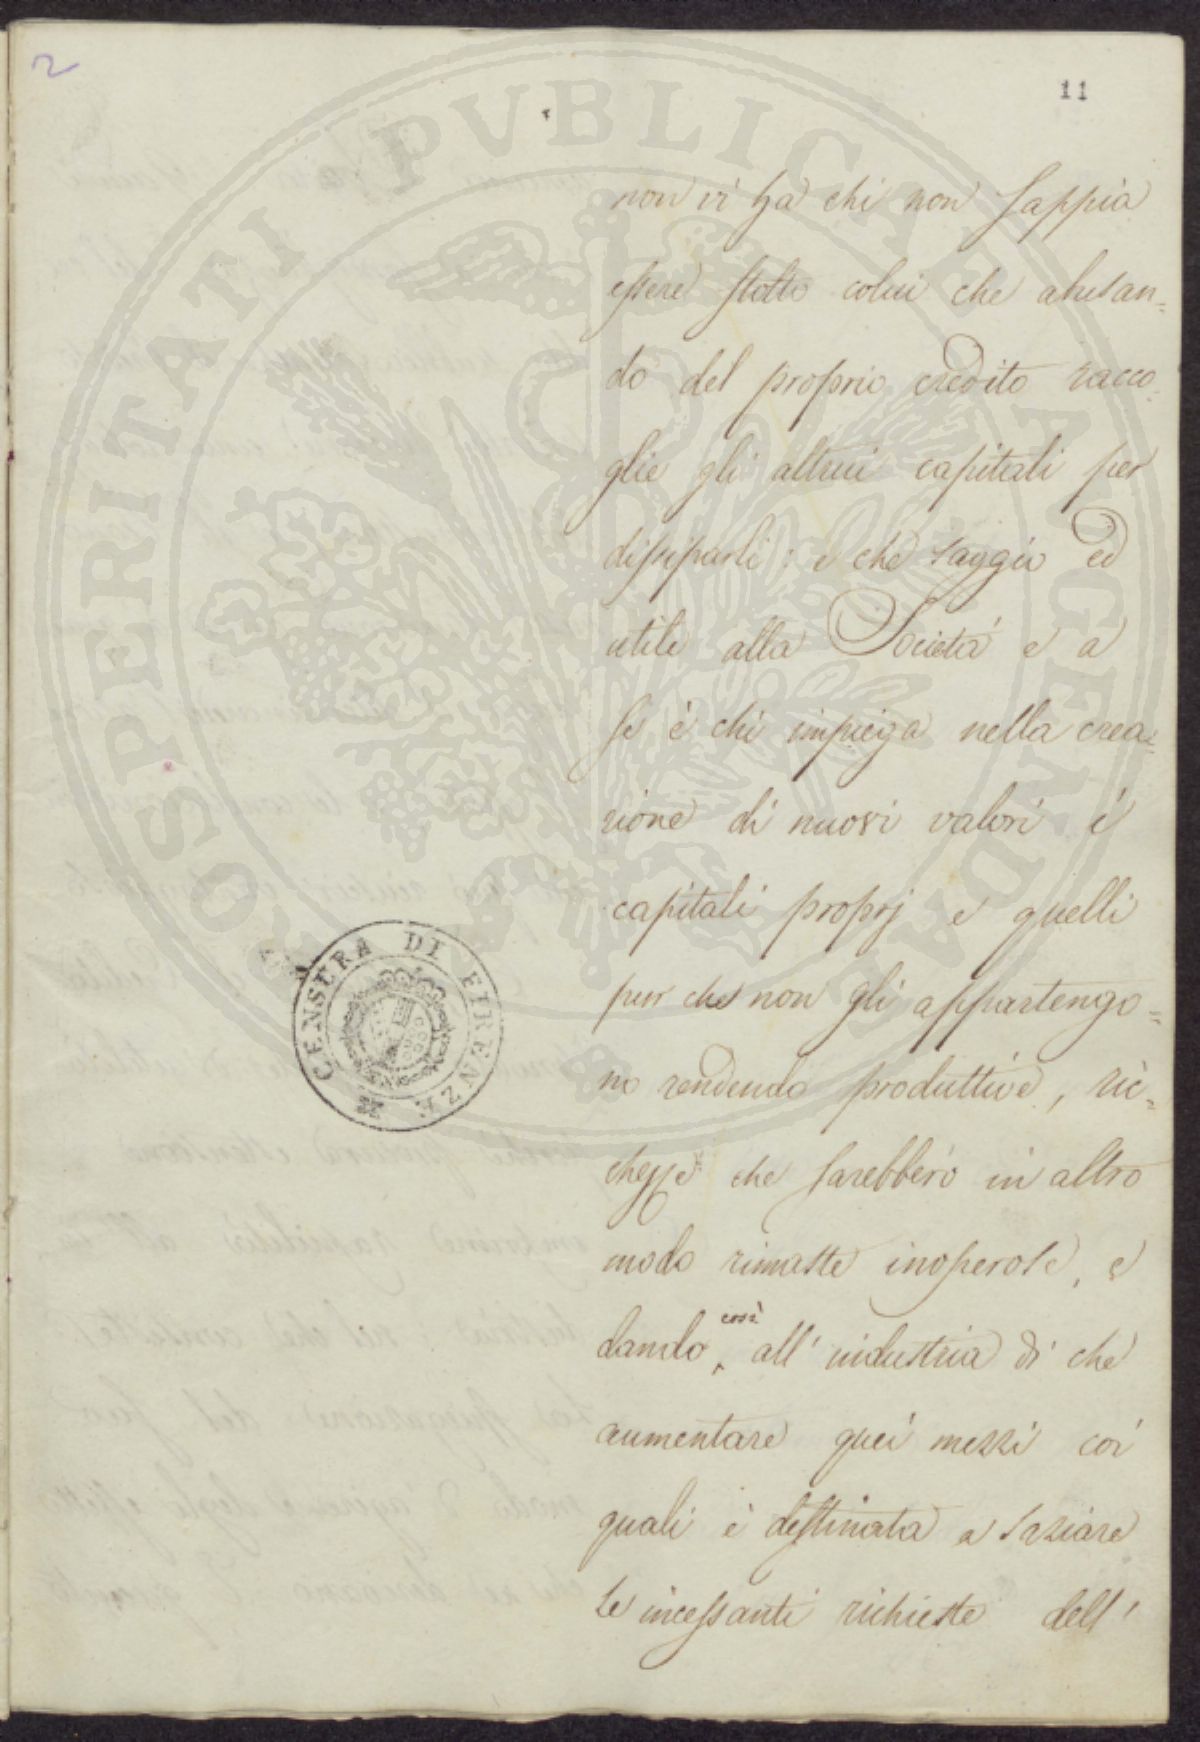 2
11
non vi ha chi non sappia
essere stolto colui che abusan=
do del proprio credito racco=
glie gli altrui capitali per
dissiparli: e che saggio ed
utile alla Società e a
se è chi impiega nella crea=
zione di nuovi valori i
capitali proprj e quelli
pur che non gli appartengo=
no rendendo produttive, ric=
chezze che sarebbero in altro
modo rimaste inoperose, e
dando così all' industria di che
aumentare quei mezzi coi
quali è destinata a saziare
le incessanti richieste dell'
CENSURA DI FIRENZE
PROSPERITATI PVBLICAE AVGENDAE